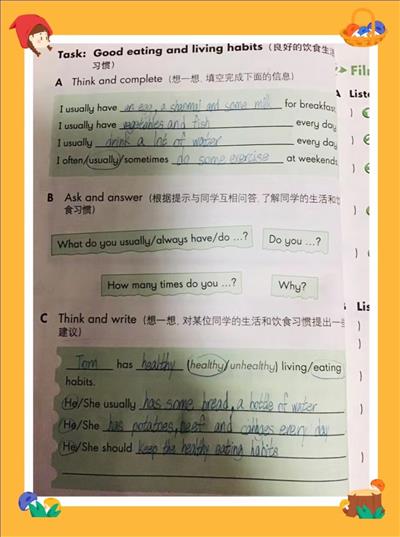 Task: Good eating and living habits (良好的饮食生活
习惯)
Film
A Think and complete (想一想, 填空完成下面的信息)
A Liste
I usually have an egg, a shanmai and some milk for breakfast
I usually have vegetables and fish every day
I usually drink a lot of water every day
I often/usually/sometimes do some exercise at weekends
B Ask and answer (根据提示与同学互相问答, 了解同学的生活和饮
食习惯)
What do you usually/always have/do ...? Do you ...?
How many times do you ...? Why?
Lis
C Think and write (想一想, 对某位同学的生活和饮食习惯提出一些
建议)
Tom has healthy (healthy/unhealthy) living/eating
habits.
He/She usually has some bread, a bottle of water
He/She has potatoes, beef and cabbages every day
He/She should keep the healthy eating habits